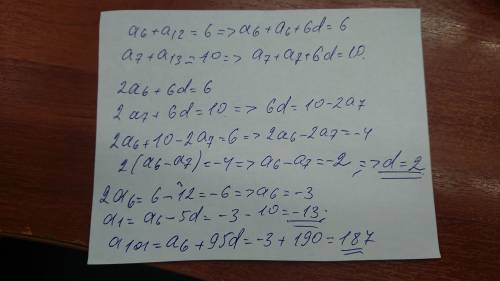 a₆+a₁₂=6=>a₆+a₆+6d=6
a₇+a₁₃=10=>a₇+a₇+6d=10.
2a₆+6d=6
2a₇+6d=10=>6d=10-2a₇
2a₆+10-2a₇=6=>2a₆-2a₇=-4
2(a₆-a₇)=-4=>a₆-a₇=-2,=>d=2
2a₆=6-12=-6=>a₆=-3
a₁=a₆-5d=-3-10=-13;
a₁₀₁=a₆+95d=-3+190=187